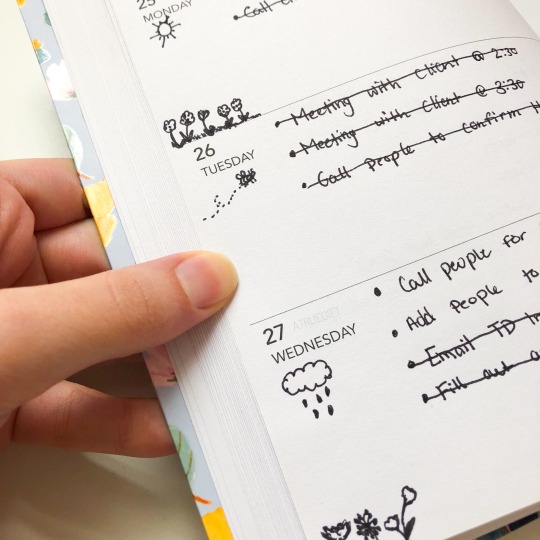 25
MONDAY
• Call
26
TUESDAY
• Meeting with Client @ 2:30
• Meeting with Client @ 3:30
• Call People to confirm
27
WEDNESDAY
• Call people for
• Add People to
• Email TD
• Fill out